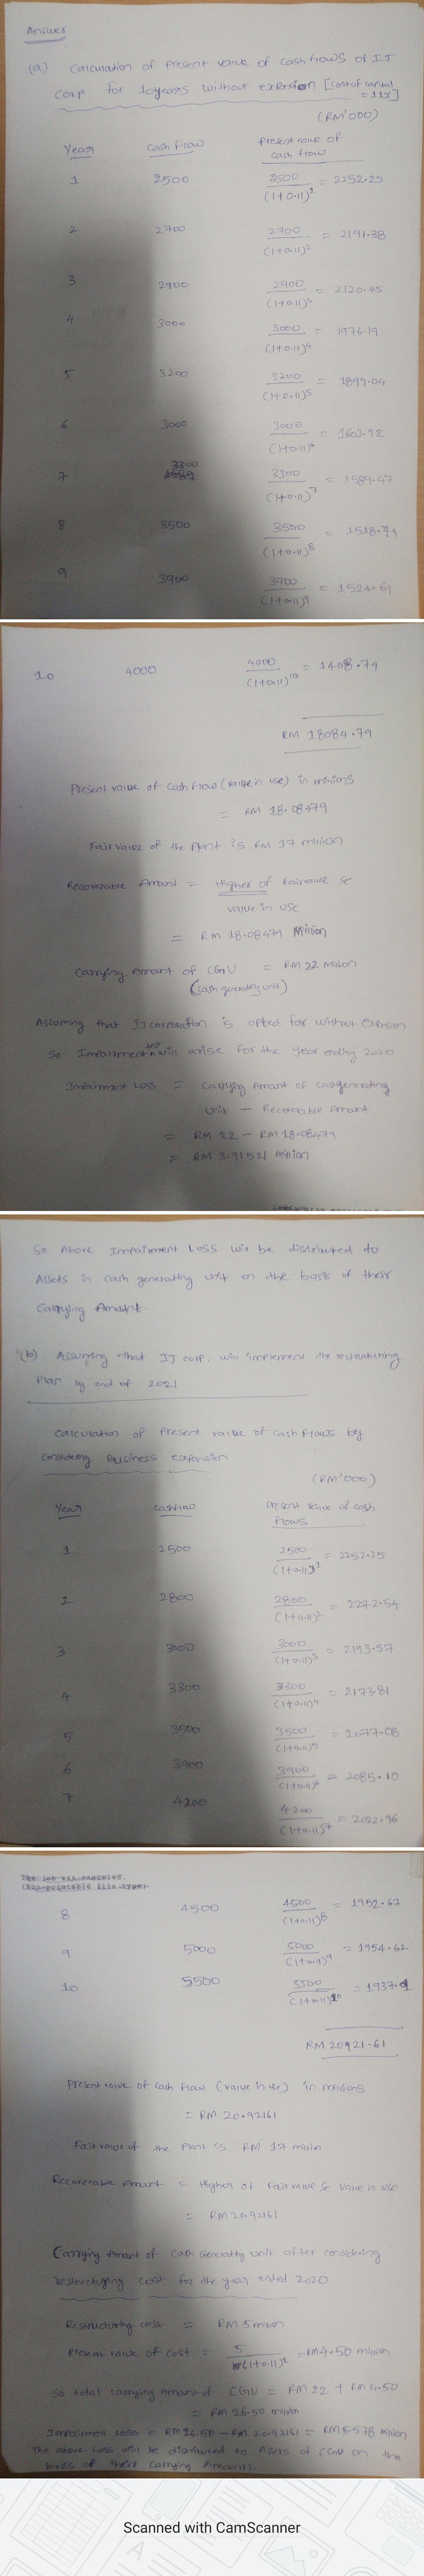 Answer
(a) Calculation of present value of cash flows of IJ
Corp for 10years without expansion [cost of capital
= 11%]
(RM'000)
Year cash flow Present value of
cash flow
1 2500 2500/(1+0.11)^1 = 2252.25
2 2700 2700/(1+0.11)^2 = 2191.38
3 2900 2900/(1+0.11)^3 = 2120.45
4 3000 3000/(1+0.11)^4 = 1976.19
5 3200 3200/(1+0.11)^5 = 1899.04
6 3000 3000/(1+0.11)^6 = 1603.92
7 3300 3300/(1+0.11)^7 = 1589.47
8 3500 3500/(1+0.11)^8 = 1518.74
9 3900 3900/(1+0.11)^9 = 1524.61
10 4000 4000/(1+0.11)^10 = 1408.74
RM 18084.79
Present value of cash flow (value in use) in millions
= RM 18.08479
Fair value of the plant is RM 17 million
Recoverable Amount = Higher of Fairvalue &
value in use
= RM 18.08479 Million
Carrying Amount of CGU = RM 22 million
(cash generating unit)
Assuming that IJ corporation is opted for without Expansion
So Impairment test will arise for the year ending 2020
Impairment Loss = Carrying Amount of cash generating
unit - Recoverable Amount
= RM 22 - RM 18.08479
= RM 3.91521 million
So Above Impairment Loss will be distributed to
Assets in cash generating unit on the basis of their
Carrying Amount.
(b) Assuming that IJ corp. will implement the restructuring
Plan by end of 2021
Calculation of Present value of cash flows by
considering Business expansion
(RM'000)
Year cashflow Present value of cash
flows
1 2500 2500/(1+0.11)^1 = 2252.25
2 2800 2800/(1+0.11)^2 = 2272.54
3 3000 3000/(1+0.11)^3 = 2193.57
4 3300 3300/(1+0.11)^4 = 2173.81
5 3500 3500/(1+0.11)^5 = 2077.08
6 3900 3900/(1+0.11)^6 = 2085.10
7 4200 4200/(1+0.11)^7 = 2022.96
The job was canceled.
(Non-printable file type).
8 4500 4500/(1+0.11)^8 = 1952.67
9 5000 5000/(1+0.11)^9 = 1954.62
10 5500 5500/(1+0.11)^10 = 1937.01
RM 20921.61
Present value of cash flow (value in use) in millions
= RM 20.92161
Fair value of the plant is RM 17 million
Recoverable Amount = Higher of Fair value & value in use
= RM 20.92161
Carrying Amount of Cash Generating unit after considering
restructuring cost for the year ended 2020
Restructuring cost = RM 5 million
Present value of cost = 5/(1+0.11)^1 = RM 4.50 million
So total carrying Amount of CGU = RM 22 + RM 4.50
= RM 26.50 million
Impairment Loss = RM 26.50 - RM 20.92161 = RM 5.578 Million
The above Loss will be distributed to Assets of CGU on the
basis of their carrying Amounts.
Scanned with CamScanner